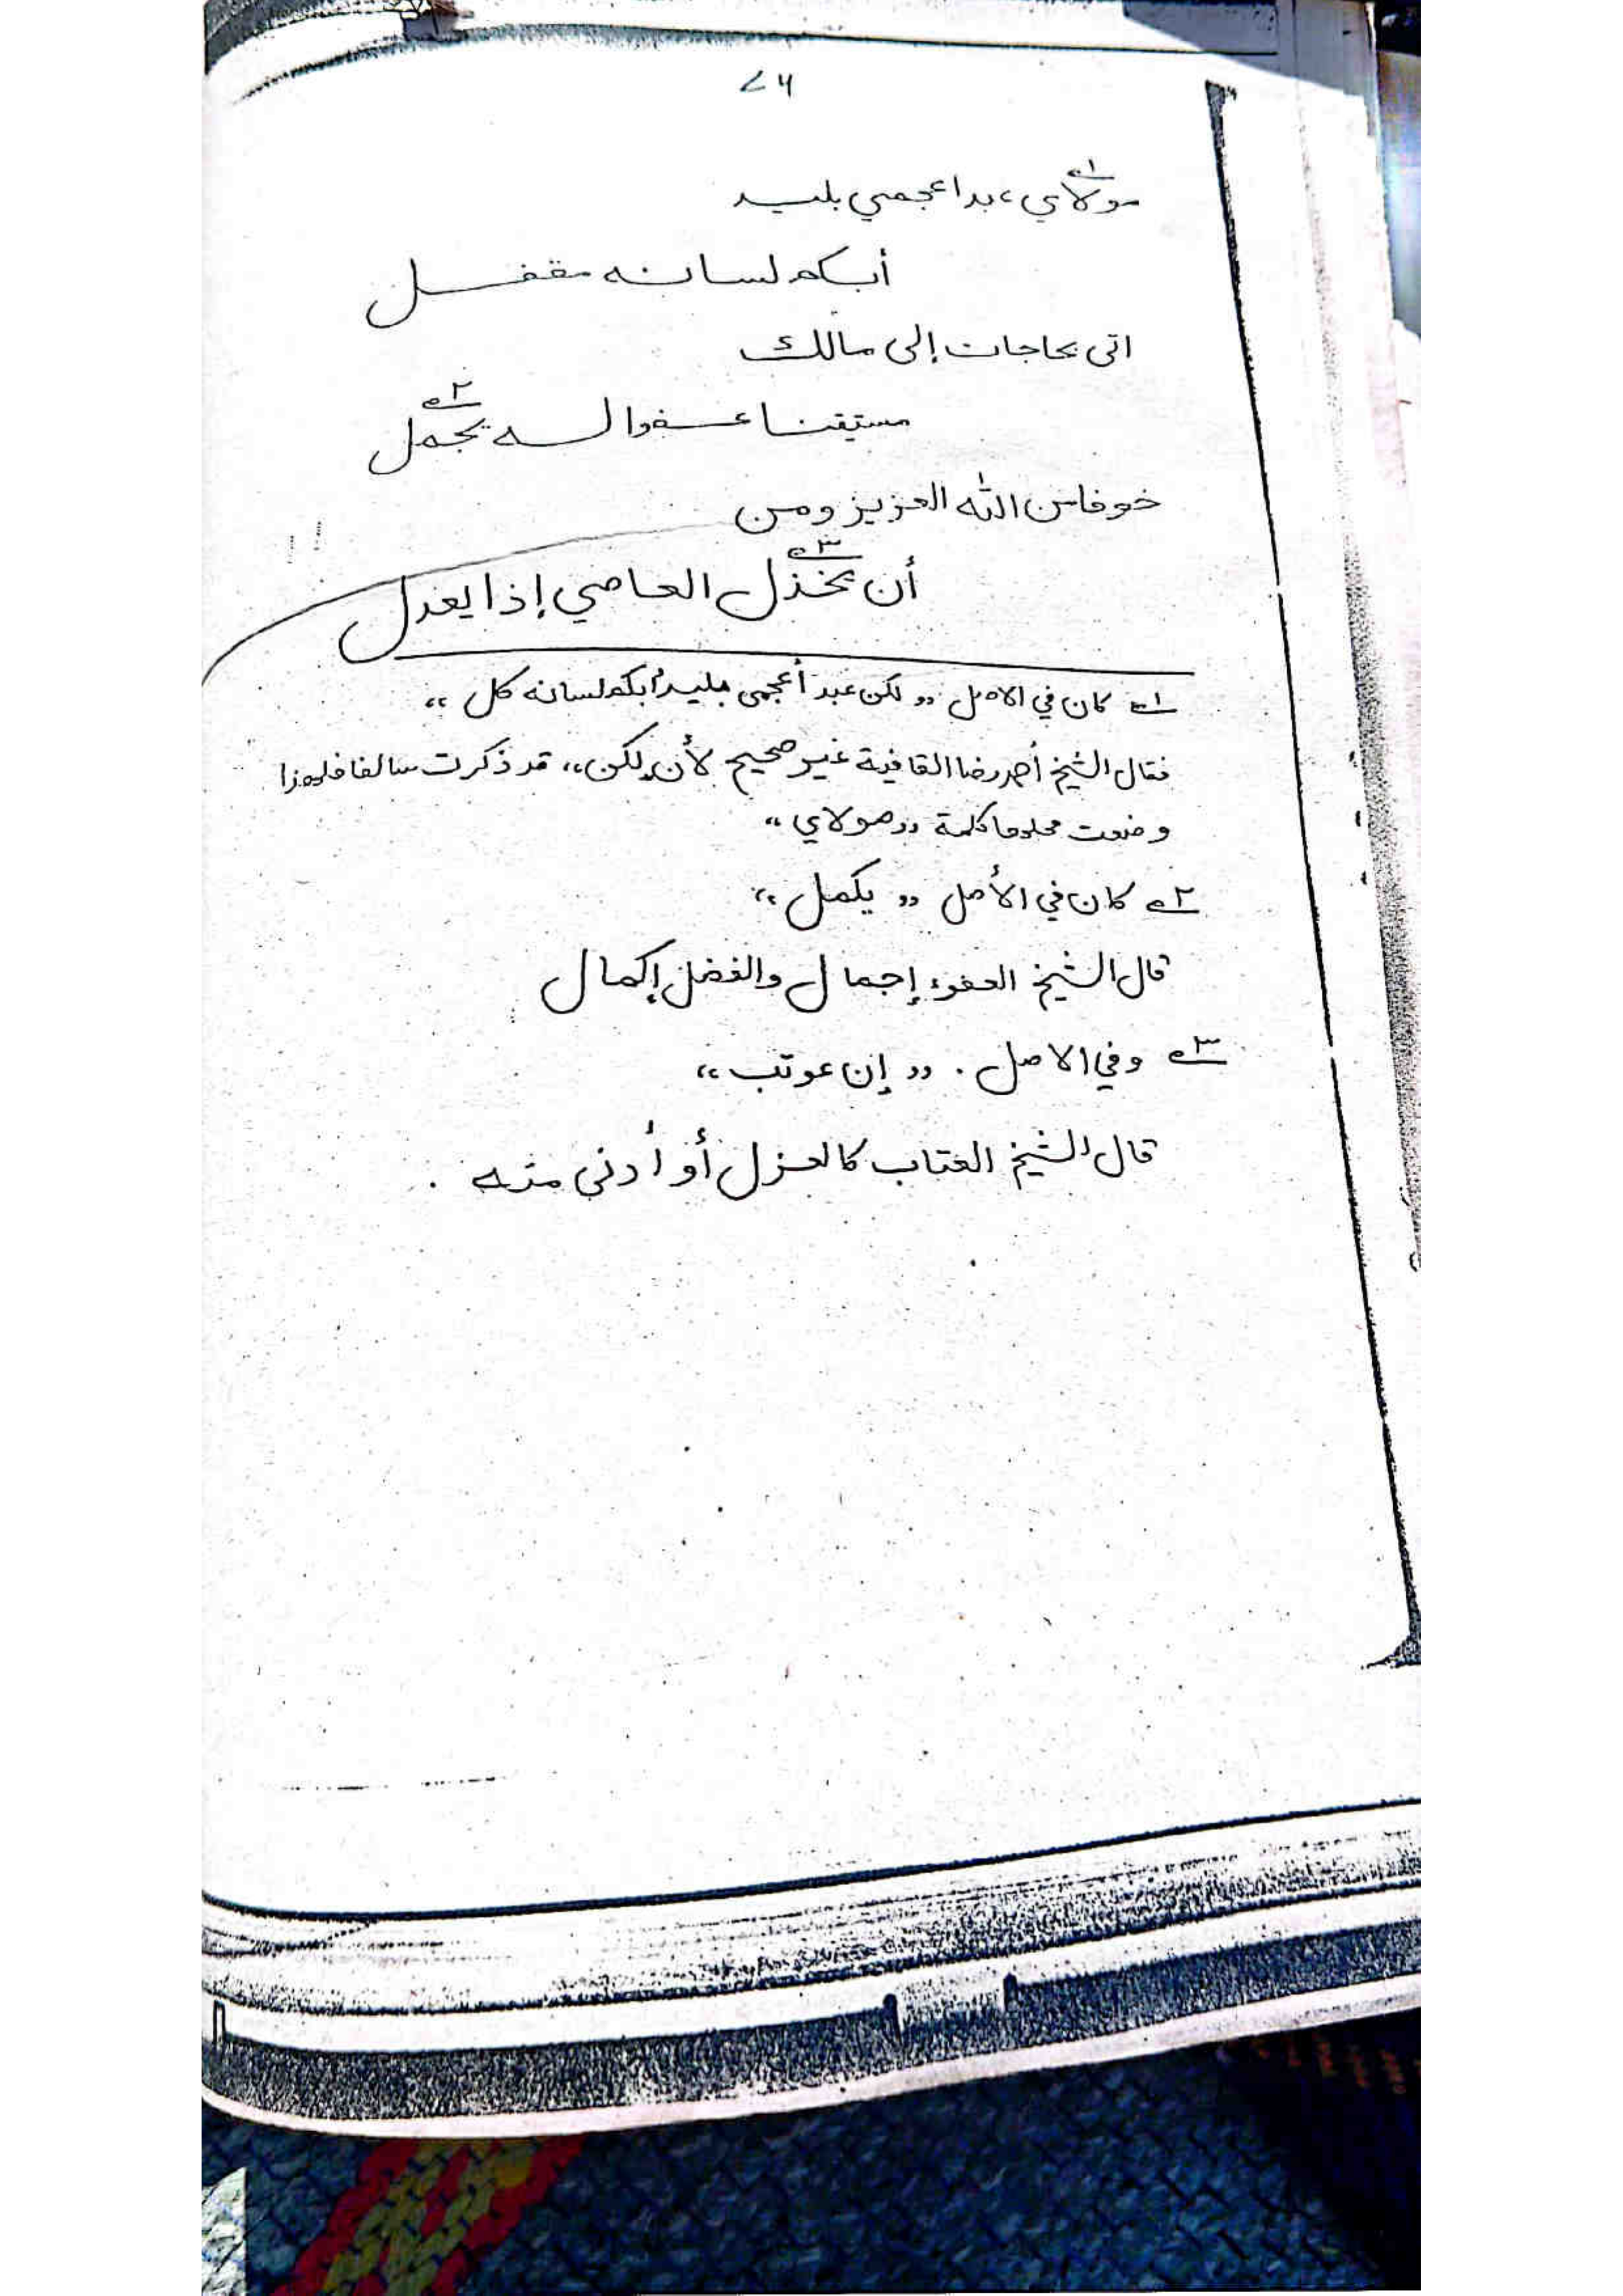 ۷۴
مولاي، بدا عجمي بليد
أبكم لسانه مقفل
اتى بحاجات إلى مالك
مستيقنا عفوا له يجمل
خوفا من الله العزيز ومن
أن يخذل العاصي إذا يعدل
١ـه كان في الاصل ,, لكن عبد أعجمي بليد أبكم لسانه كل ،،
فقال الشيخ أحمد رضا القافية غير صحيح لأن ,,لكن،، قد ذكرت سالفا فلهذا
وضعت محلها كلمة ,, مولاي ،،
٢ـه كان في الأصل ,, يكمل ،،
قال الشيخ العفوء إجمال والفضل إكمال
٣ـه وفي الاصل . ,, إن عوتب ،،
قال الشيخ العتاب كالعزل أو أدنى منه .